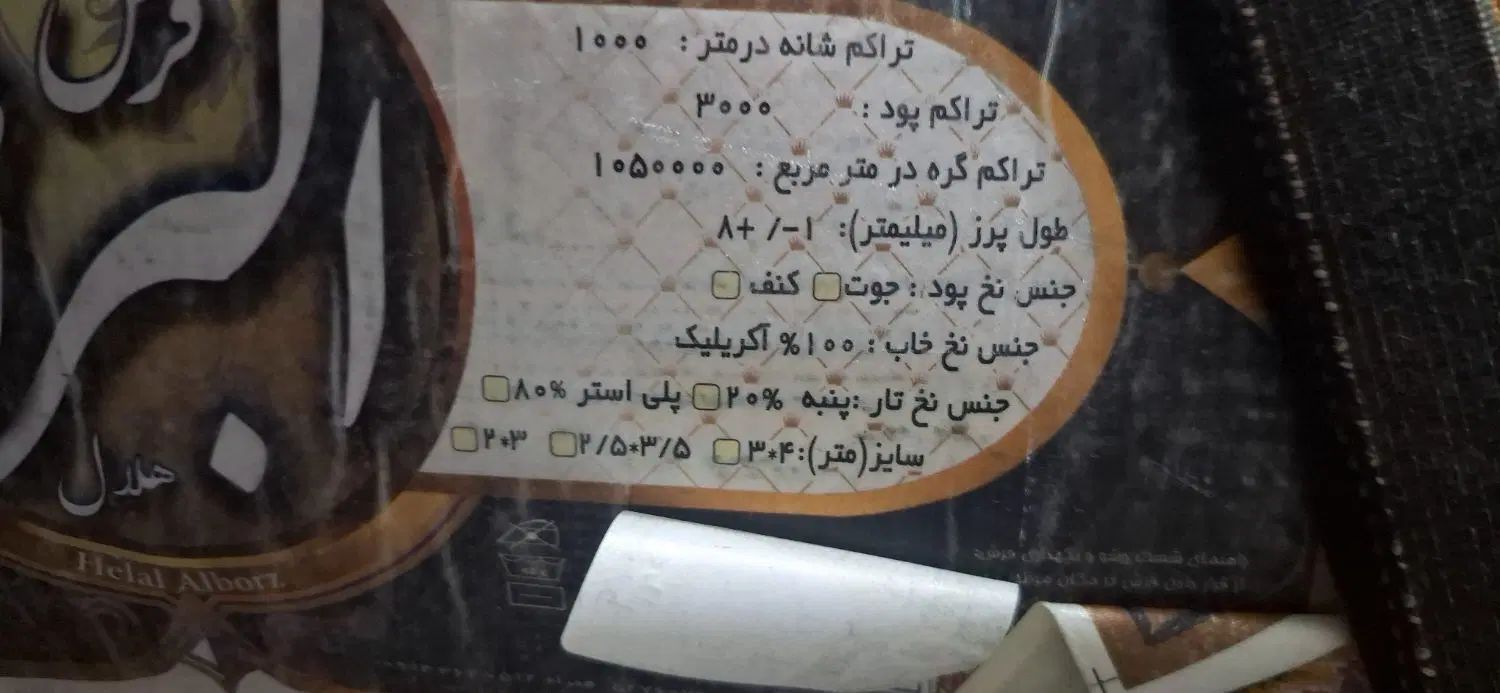 فرش
البرز
هلال
Helal Alborz
تراکم شانه درمتر : ۱۰۰۰
تراکم پود : ۳۰۰۰
تراکم گره در متر مربع : ۱۰۵۰۰۰۰
طول پرز (میلیمتر): ۱-/ +۸
جنس نخ پود : جوت کنف
جنس نخ خاب : ۱۰۰% آکریلیک
جنس نخ تار :پنبه ۲۰% پلی استر ۸۰%
سایز(متر):۴*۳ ۲/۵*۳/۵ ۲*۳
راهنمای شست وشو و نگهداری فرش